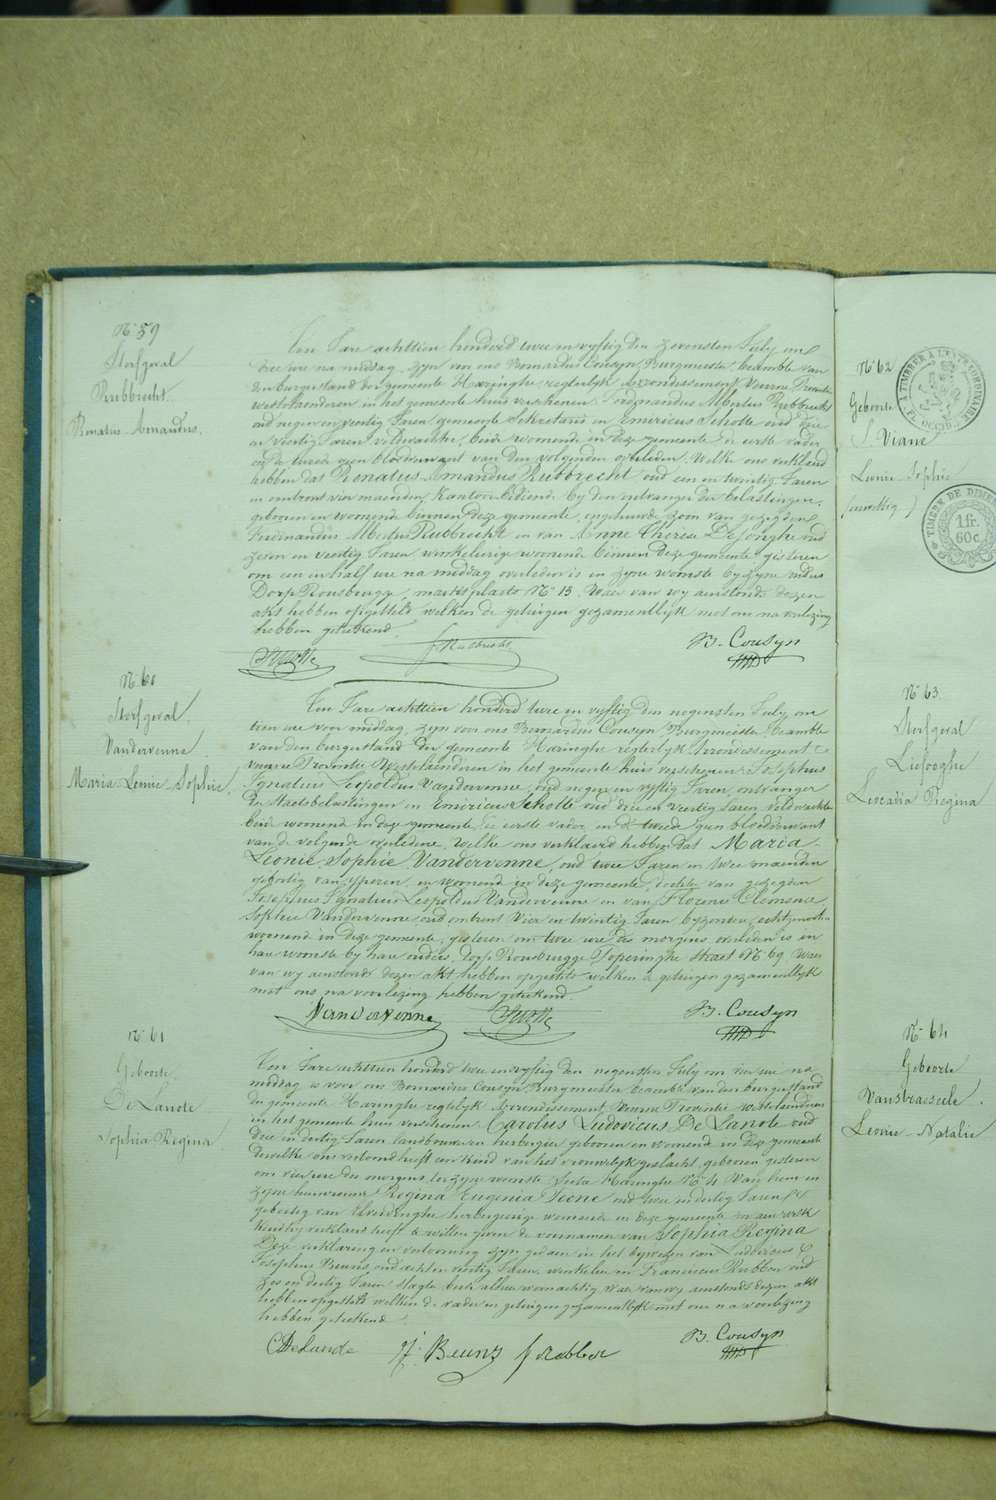 N° 59
Sterfgeval
Rubbrecht
Renatus Amandus.
Ten Jare achttien honderd twee en vyftig den zevensten July om
drie ure na middag, zyn voor ons Bernardus Cousyn, Burgmeester, beambte van
den burgerstand der gemeente Haringhe, regterlyk Arrondissement Veurne Provintie
Westvlaenderen in het gemeente huis verschenen Ferdinandus Albertus Rubbrecht
oud negen en veertig Jaren gemeente Sekretaris en Emiricus Scholte oud drie
en veertig Jaren veldwachter, beide woonende in deze gemeente de eerste vader
en de tweede geen bloedverwant van den volgenden overleden. Welke ons verklaerd
hebben dat Renatus Amandus Rubbrecht oud een en twintig Jaren
en omtrent vier maenden, kantoorbediende by den ontvanger der belastingen,
geboren en woonend binnen deze gemeente, ongehuwde zoon van gezegden
Ferdinandus Albertus Rubbrecht en van Anne Therese DeJonghe oud
zeven en veertig Jaren winkelierige woonende binnen deze gemeente, gisteren
om een en half ure na middag overleden is in zyne woonste by zyne ouders
Dorp Rousbrugge, markt plaets N° 13. Waer van wy aenstonds dezen
akt hebben opgesteld welken de getuigen gezamentlyk met ons na voorlezing
hebben geteekend.
Scholte
Rubbrecht
B. Cousyn
N. 60
Sterfgeval
Vandervenne
Maria Leonie Sophie.
Ten Jare achttien honderd twee en vyftig den negensten July om
tien ure voor middag, zyn voor ons Bernardus Cousyn Burgmeester, beambte
van den burgerstand der gemeente Haringhe regterlyk Arrondissement
Veurne Provintie Westvlaenderen in het gemeente huis verschenen Josephus
Ignatius Leopoldus Vandervenne, oud negen en vyftig Jaren, ontvanger
der Staetsbelastingen en Emiricus Scholte oud drie en veertig Jaren, veldwachter
beide woonend in deze gemeente, de eerste vader en de tweede geen bloedverwant
van de volgende overledene. Welke ons verklaerd hebben dat Maria
Leonie Sophie Vandervenne, oud twee Jaren en twee maenden
geboortig van Yperen, en woonend in deze gemeente, dochter van gezegden
Josephus Ignatius Leopoldus Vandervenne en van Florence Clemence
Sophie Vandervenne oud omtrent Vier en twintig Jaren byzondere, echtgenoot
woonend in deze gemeente, gisteren om twee ure des morgens overleden is in
hare woonste by hare ouders, dorp Rousbrugge Poperinghe straet N° 69. Waer
van wy aenstonds dezen akt hebben opgesteld welken de getuigen gezamentlyk
met ons na voorlezing hebben geteekend.
Vandervenne
Scholte
B. Cousyn
N° 61
Geboorte
De Lanote
Sophia Regina
Ten Jare achttien honderd twee en vyftig den negensten July om vier ure na
middag is voor ons Bernardus Cousyn, Burgmeester beambte van den burgerstand
der gemeente Haringhe regterlyk Arrondissement Veurne Provintie Westvlaenderen
in het gemeente huis verschenen Carolus Ludovicus De Lanote oud
drie en dertig Jaren landbouwer en herbergier geboren en woonend in deze gemeente
dewelke ons vertoond heeft een kind van het vrouwelyk geslacht, geboren gisteren
om vier ure des morgens ter zyne woonste Haringhe N° 4 Van hem en
zyne huisvrouwe Regina Eugenia oud twee en dertig Jaren
geboortig van Elverdinghe herbergierige woonende in deze gemeente en aen welk
kind hy verklaerd heeft te willen geven de voornamen van Sophia Regina
Deze verklaring en vertooning zyn gedaen in het bywezen van Ludovicus
Josephus Beuns, oud achten veertig Jaren, winkelier en Franciscus Rubben oud
zes en dertig Jaren slagter beide alhier woonachtig. Waer van wy aenstonds dezen akt
hebben opgesteld welken de vader en getuigen gezamentlyk met ons na voorlezing
hebben geteekend.
B. Cousyn
N° 62
Geboorte
Viane
Leonie Sophie
(onwettig)
TIMBRE A L'EXTRAORDINAIRE
FL. OCCID.
TIMBRE DE DIMEN
1 fr.
60 c.
N° 63
Sterfgeval
Liefooghe
Leocadia Regina
N° 64
Geboorte
Vanstraeseele
Leonie Natalie